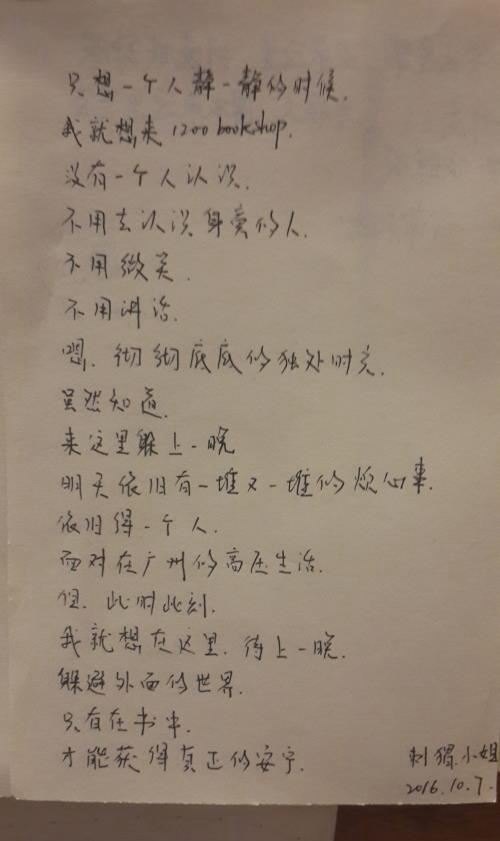 只想一个人静一静的时候.
我就想来1200bookshop.
没有一个人认识.
不用去认识身旁的人.
不用微笑.
不用讲话.
嗯.彻彻底底的独处时光.
虽然知道.
来这里躲上一晚
明天依旧有一堆又一堆的烦心事.
依旧得一个人.
面对在广州的高压生活.
但.此时此刻.
我就想在这里.待上一晚.
躲避外面的世界.
只有在书中.
才能获得真正的安宁.
刺猬小姐
2016.10.7.